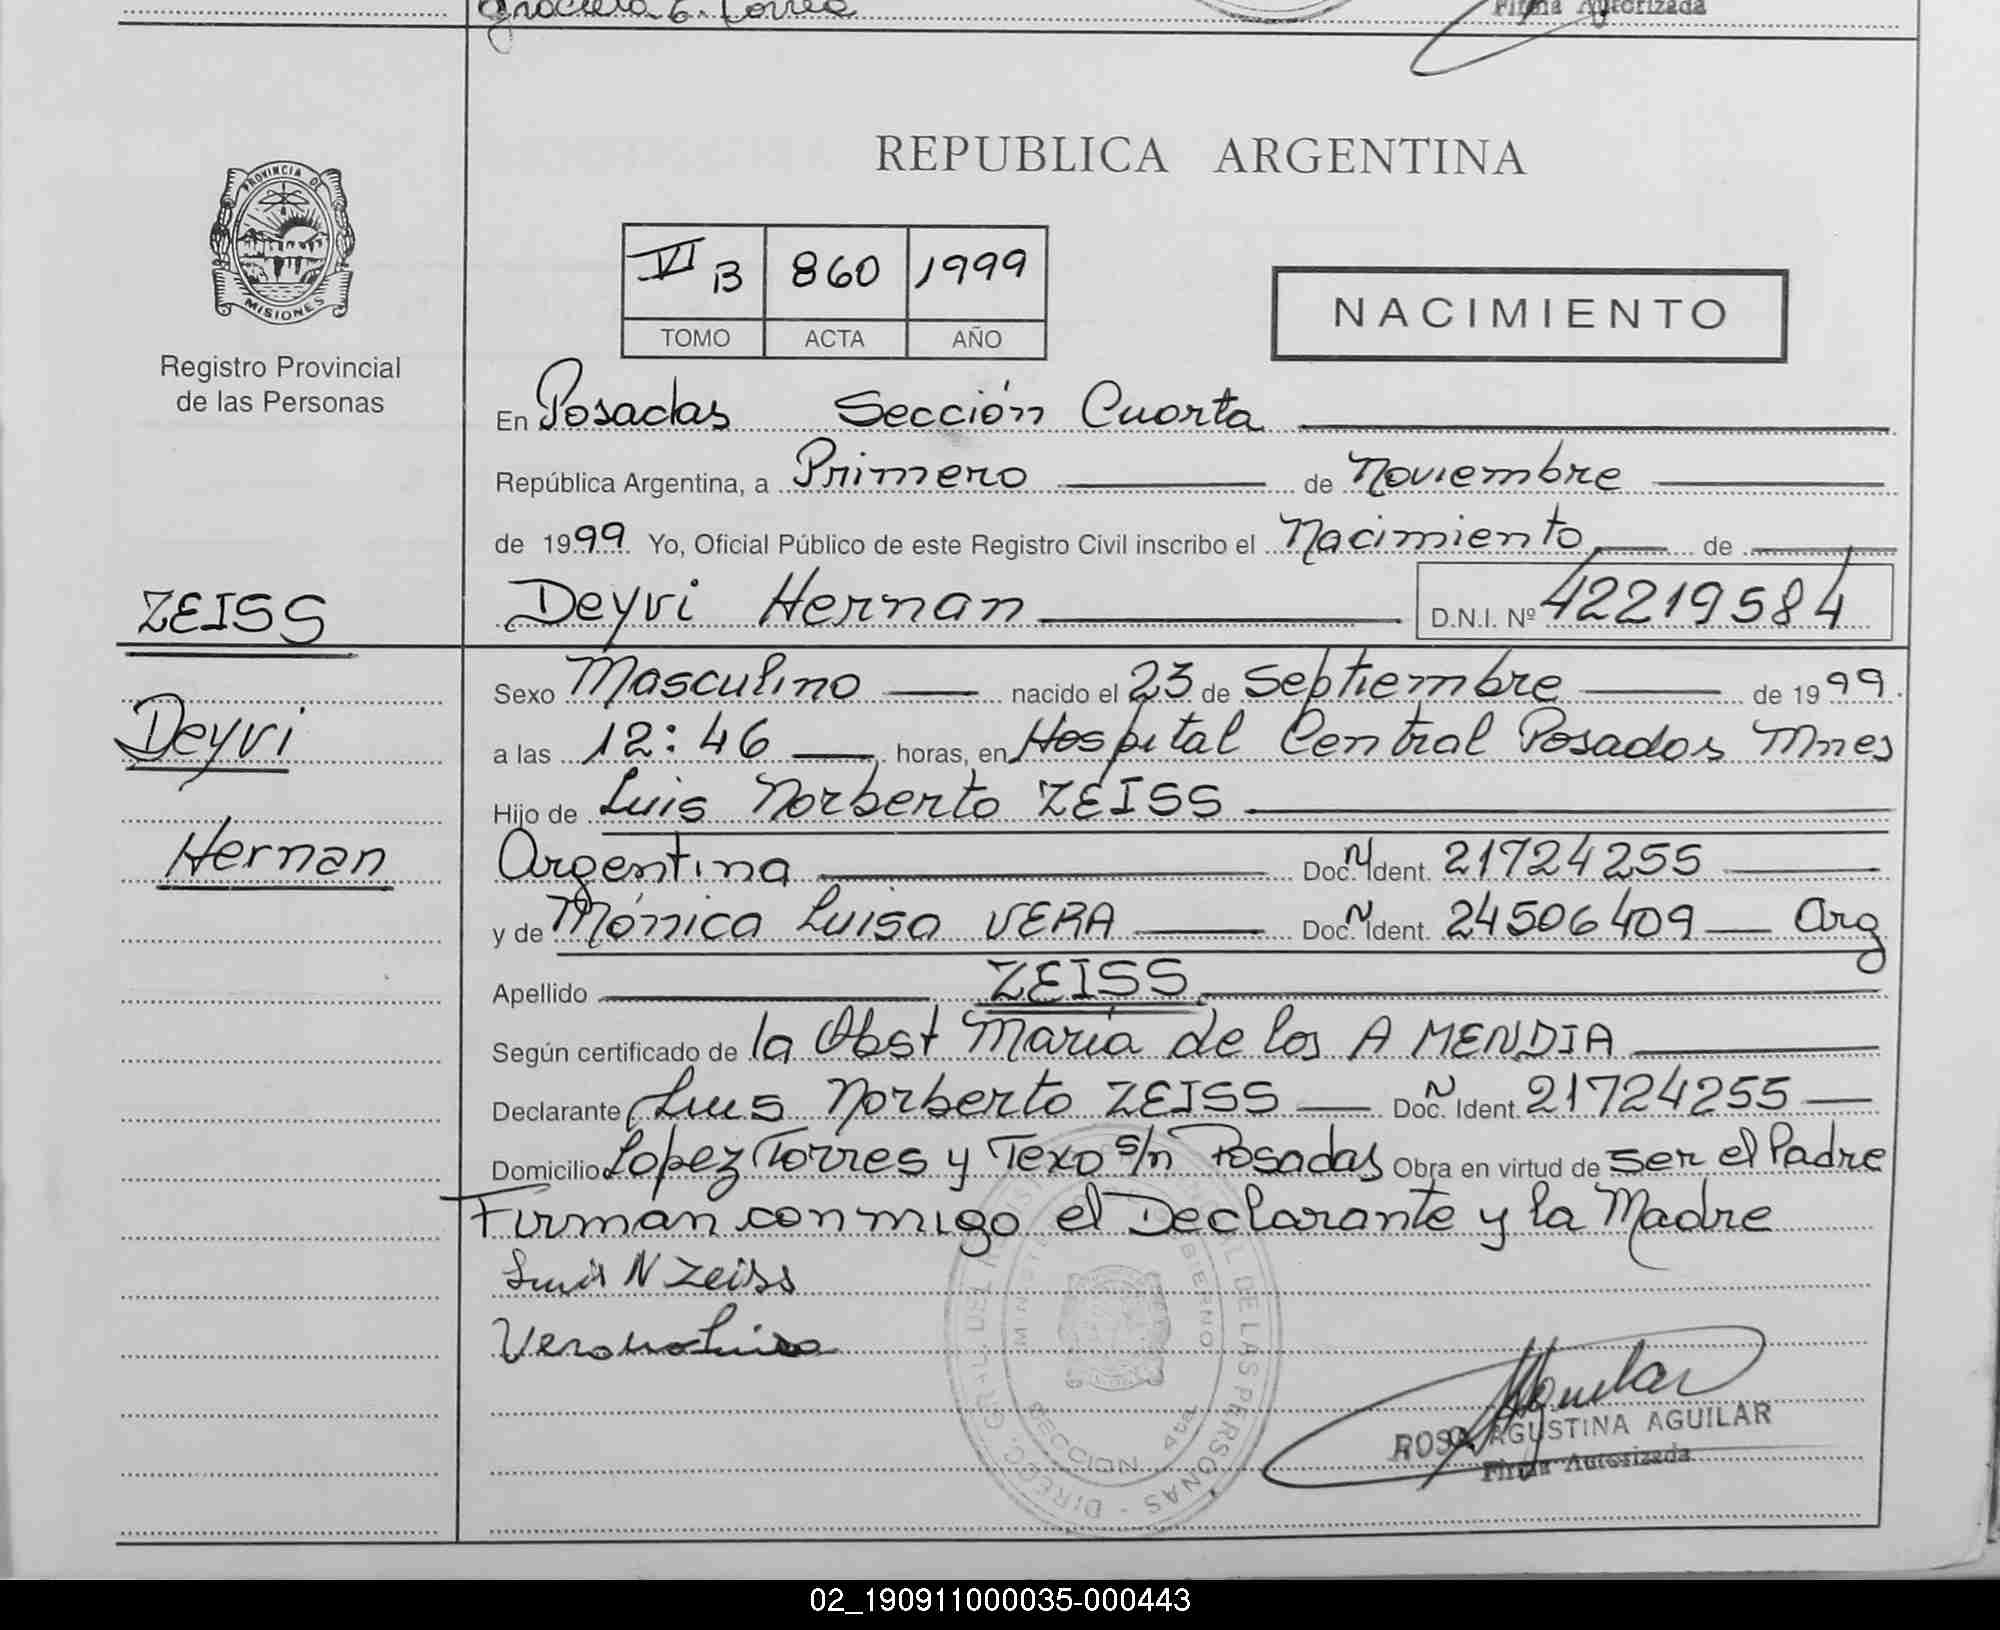 Graciela E. Correa
Firma Autorizada
REPUBLICA ARGENTINA
PROVINCIA DE
MISIONES
Registro Provincial
de las Personas
VI B 860 1999
TOMO ACTA AÑO
NACIMIENTO
En Posadas Sección Cuarta
República Argentina, a Primero de Noviembre
de 1999 Yo, Oficial Público de este Registro Civil inscribo el Nacimiento de
ZEISS
Deyvi Hernan D.N.I. Nº 42219584
Deyvi
Hernan
Sexo Masculino nacido el 23 de Septiembre de 1999.
a las 12:46 horas, en Hospital Central Posadas Mnes
Hijo de Luis Norberto ZEISS
Argentina Doc. Ident. 21724255
y de Mónica Luisa VERA Doc. Ident. 24506409 Arg
Apellido ZEISS
Según certificado de la Obst María de los A MENDIA
Declarante Luis Norberto ZEISS Doc. Ident. 21724255
Domicilio Lopez Torres y Texo s/n Posadas Obra en virtud de ser el Padre
Firman conmigo el Declarante y la Madre
Luis N Zeiss
Vera Luisa
DIREC. GRAL. DEL REGISTRO PROVINCIAL DE LAS PERSONAS
MINISTERIO DE GOBIERNO
SECCION 4ta
Aguilar
ROSA AGUSTINA AGUILAR
Firma Autorizada
02_190911000035-000443